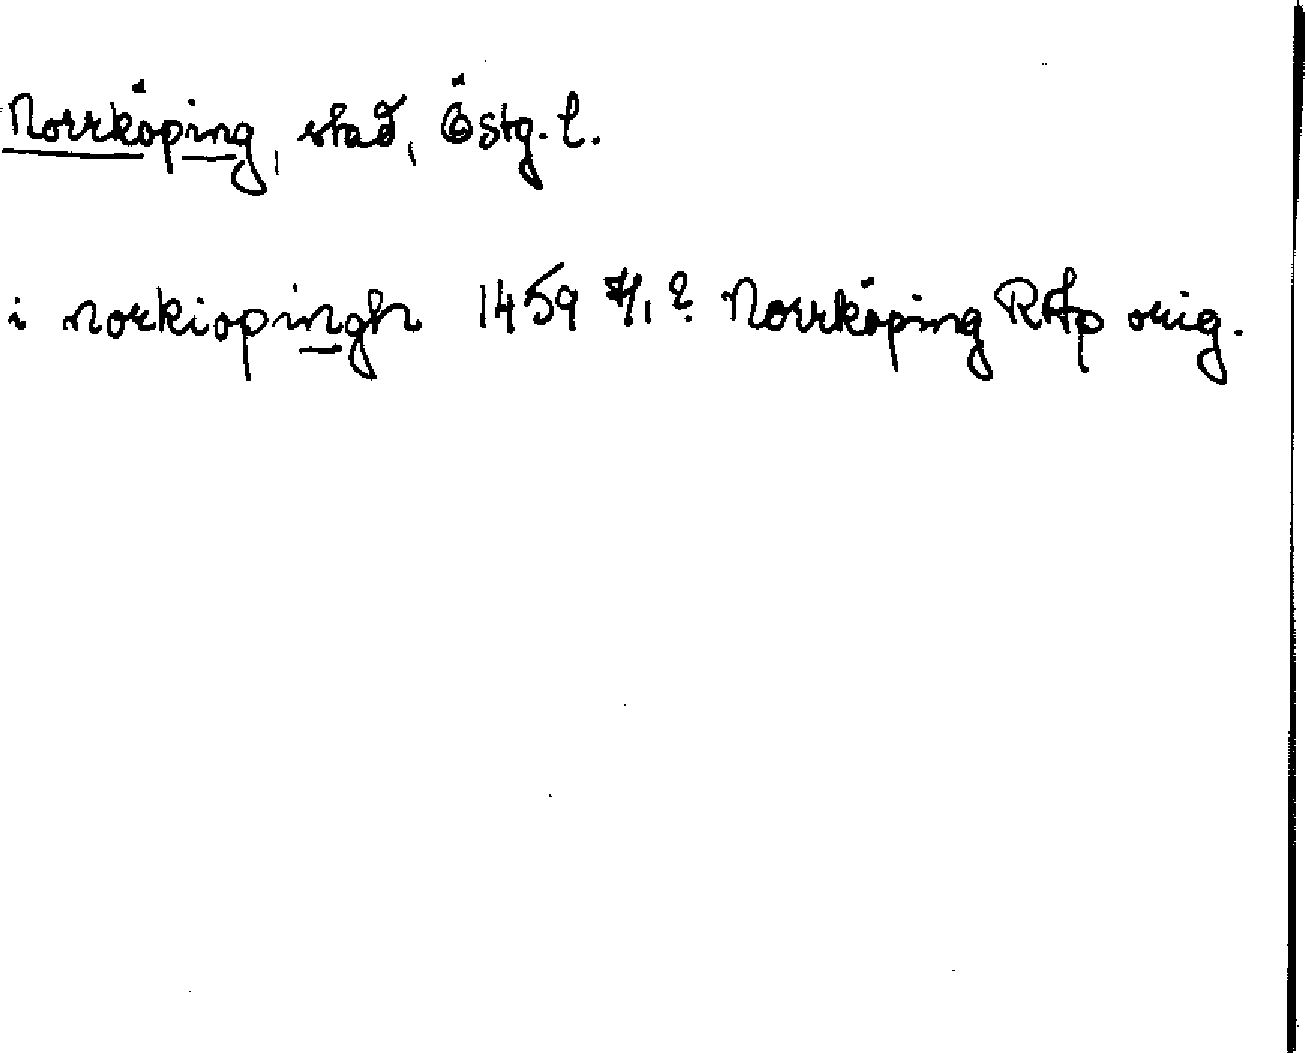 Norrköping, stad, Östg. l.
i norkiopingh 1459 4/1? Norrköping RAp orig.